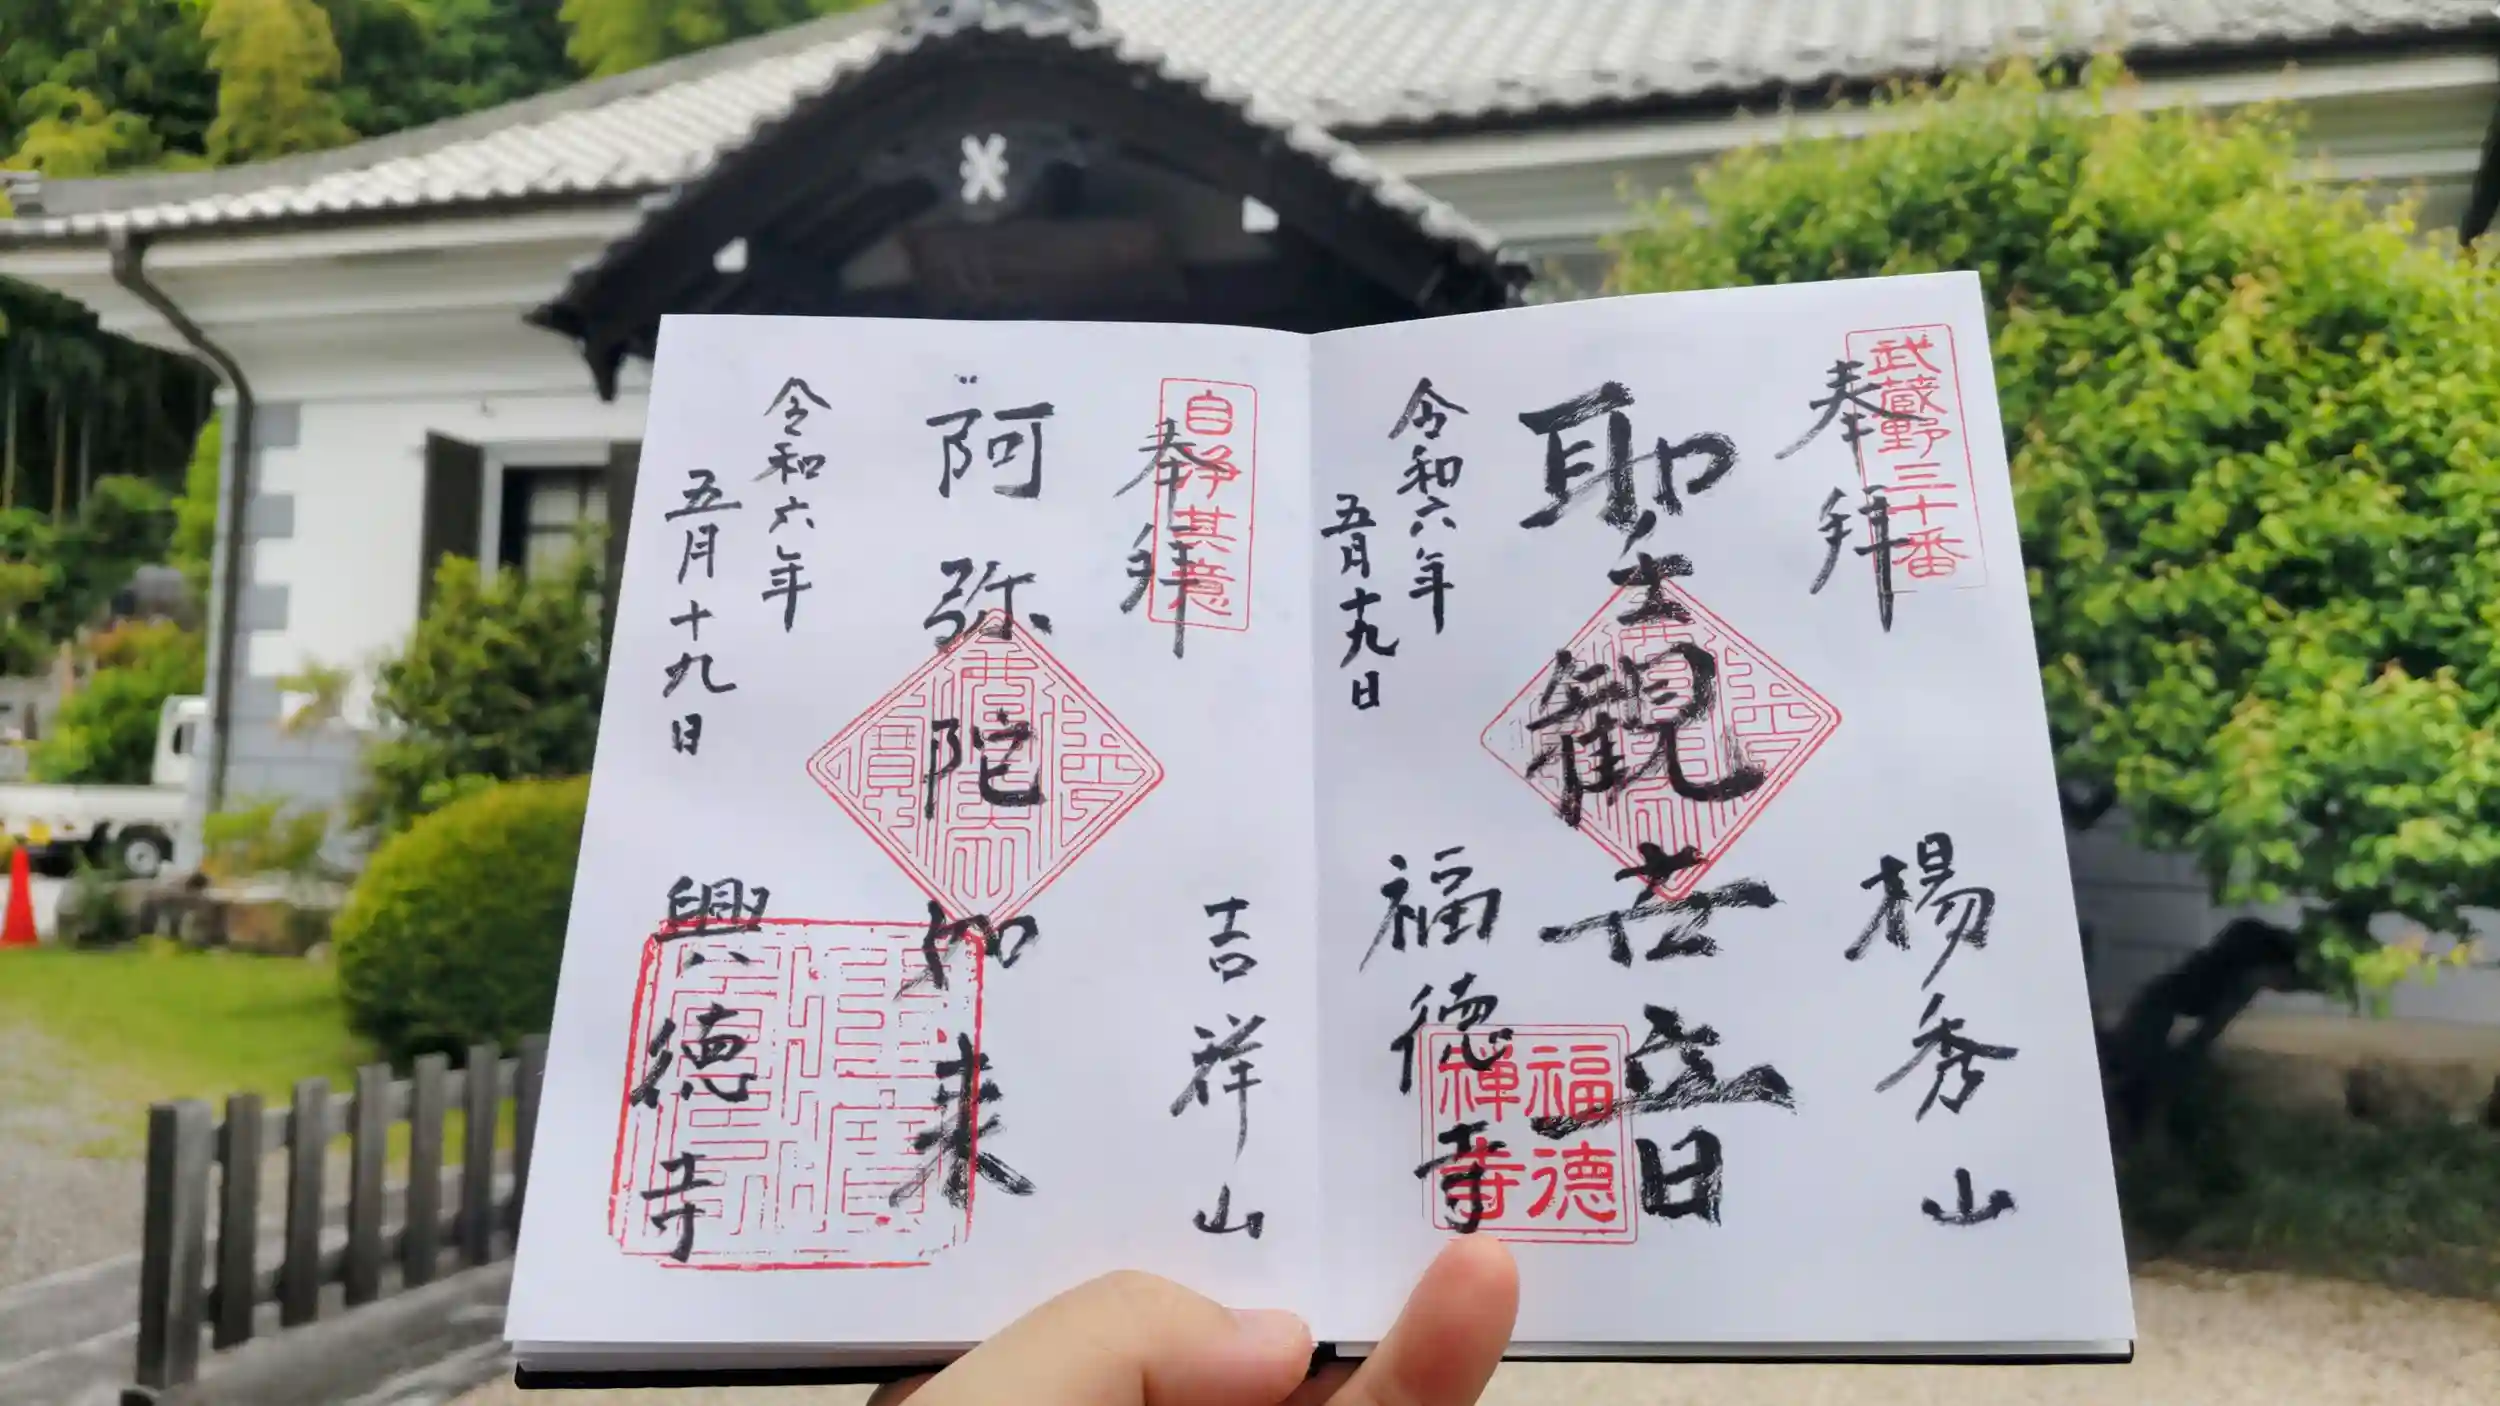 武蔵野三十番
奉拝
楊秀山
聖観世音
令和六年
五月十九日
福徳寺
福徳
禅寺
自浄其意
奉拝
吉祥山
阿弥陀如来
令和六年
五月十九日
興徳寺